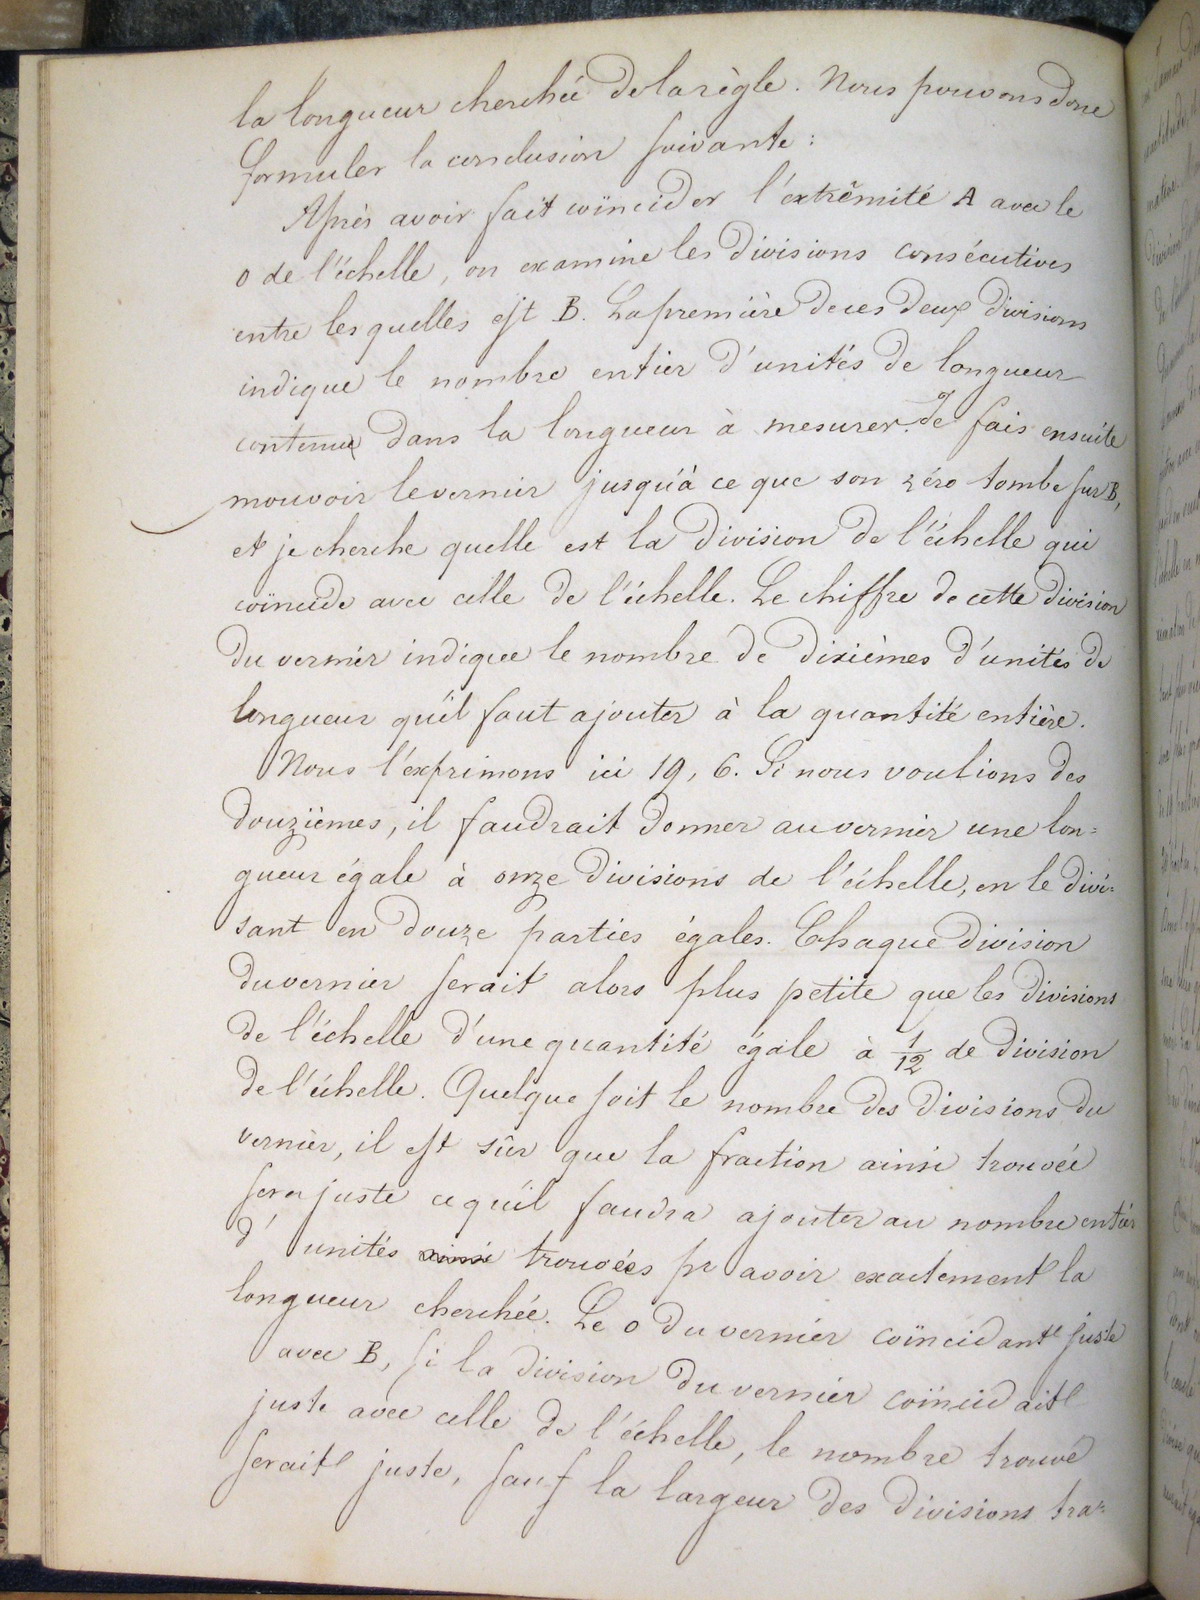 la longueur cherchée de la règle. Nous pouvons donc
formuler la conclusion suivante :
Après avoir fait coïncider l'extrêmité A avec le
0 de l'échelle, on examine les divisions consécutives
entre lesquelles est B. La première de ces deux divisions
indique le nombre entier d'unités de longueur
contenue dans la longueur à mesurer. Je fais ensuite
mouvoir le vernier jusqu'à ce que son zéro tombe sur B,
et je cherche quelle est la division de l'échelle qui
coïncide avec celle de l'échelle. Le chiffre de cette division
du vernier indique le nombre de dixièmes d'unités de
longueur qu'il faut ajouter à la quantité entière.
Nous l'exprimons ici 19, 6. Si nous voulions des
douzièmes, il faudrait donner au vernier une lon=
gueur égale à onze divisions de l'échelle, en le divi=
sant en douze parties égales. Chaque division
du vernier serait alors plus petite que les divisions
de l'échelle d'une quantité égale à 1/12 de division
de l'échelle. Quelque soit le nombre des divisions du
vernier, il est sûr que la fraction ainsi trouvée
sera juste ce qu'il faudra ajouter au nombre entier
d'unités ainsi trouvées pr avoir exactement la
longueur cherchée. Le 0 du vernier coïncidant juste
avec B, si la division du vernier coïncidait
juste avec celle de l'échelle, le nombre trouvé
serait juste, sauf la largeur des divisions tra=